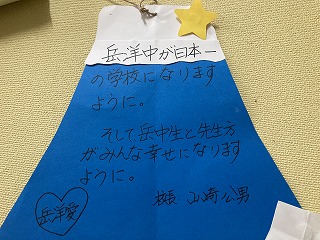 岳洋中が日本一
の学校になります
ように。
そして岳中生と先生方
がみんな幸せになります
ように。
岳洋愛
校長 山崎公男